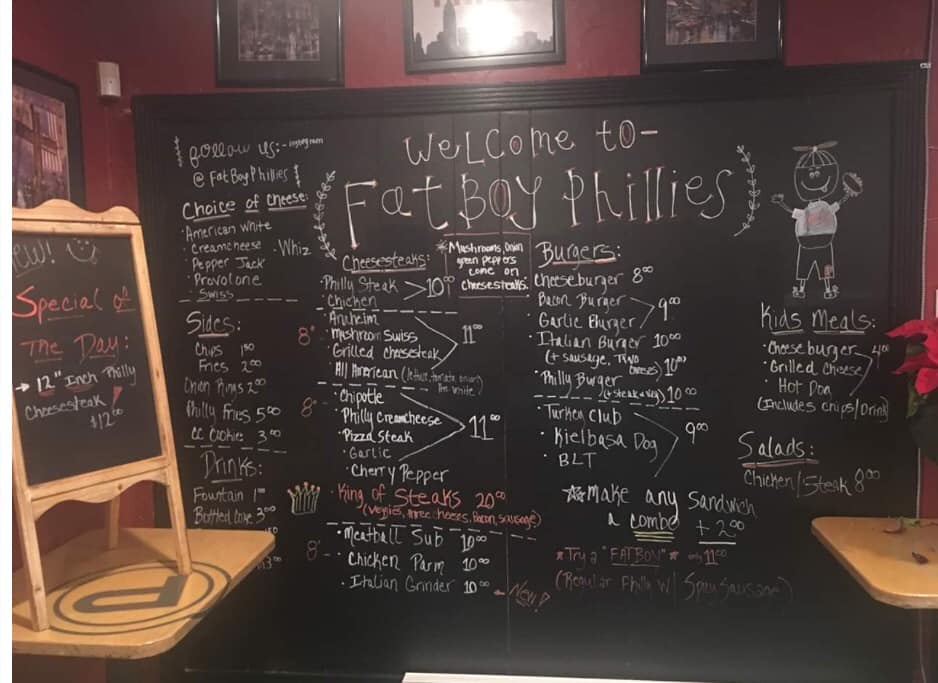 follow us:- instagram
@ FatBoyPhillies
Choice of Cheese:
· American White
· Creamcheese · Whiz
· Pepper Jack
· Provolone
· Swiss
Sides:
Chips 1.50
Fries 2.00
Onion Rings 2.00
Philly Fries 5.00
CC Cookie 3.00
Drinks:
Fountain 1.00
Bottled Coke 3.00
New!
Special of
The Day:
→ 12" Inch Philly
Cheesesteak!
$12.00
Welcome to-
FatBoy Phillies
Cheesesteaks:
* Mushrooms, Onion
green peppers
come on
cheesesteaks.
· Philly Steak
· Chicken
> 10.00
8"
· Anaheim
· Mushroom Swiss
· Grilled Cheesesteak
· All American (lettuce, tomato, onion)
11.00
8"
· Chipotle
· Philly Creamcheese
· Pizza Steak
· Garlic
· Cherry Pepper
11.00
· King of Steaks 20.00
(Vegies, three cheeses, bacon, sausage)
8"
· Meatball Sub 10.00
· Chicken Parm 10.00
· Italian Grinder 10.00 ← New!
Burgers:
Cheeseburger 8.00
· Bacon Burger
· Garlic Burger
9.00
· Italian Burger 10.00
(+ sausage, two cheeses) 10.00
· Philly Burger
(+ steak & veg) 10.00
· Turkey Club
· Kielbasa Dog
· BLT
9.00
☆ Make any Sandwich
a combo + 2.00
* Try a "FATBOY" * only 11.00
(Regular Philly w/ Spicy Sausage)
Kids Meals:
· Cheeseburger
· Grilled Cheese
· Hot Dog
4.00
(Includes chips/Drink)
Salads:
Chicken/Steak 8.00